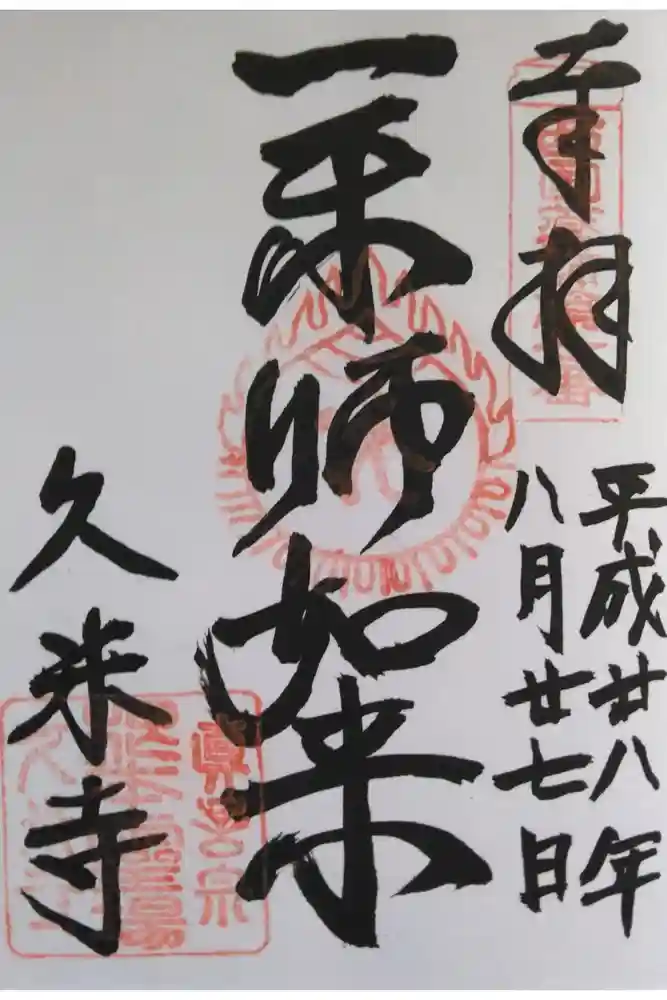 奉拝
平成廿八年
八月廿七日
薬師如来
久米寺
真言宗